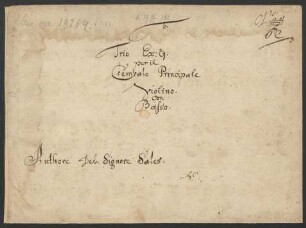 Trio Ex. G.
per il
Cembalo Principale
Violino.
con
Basso.
Authore Del Signore Sales.